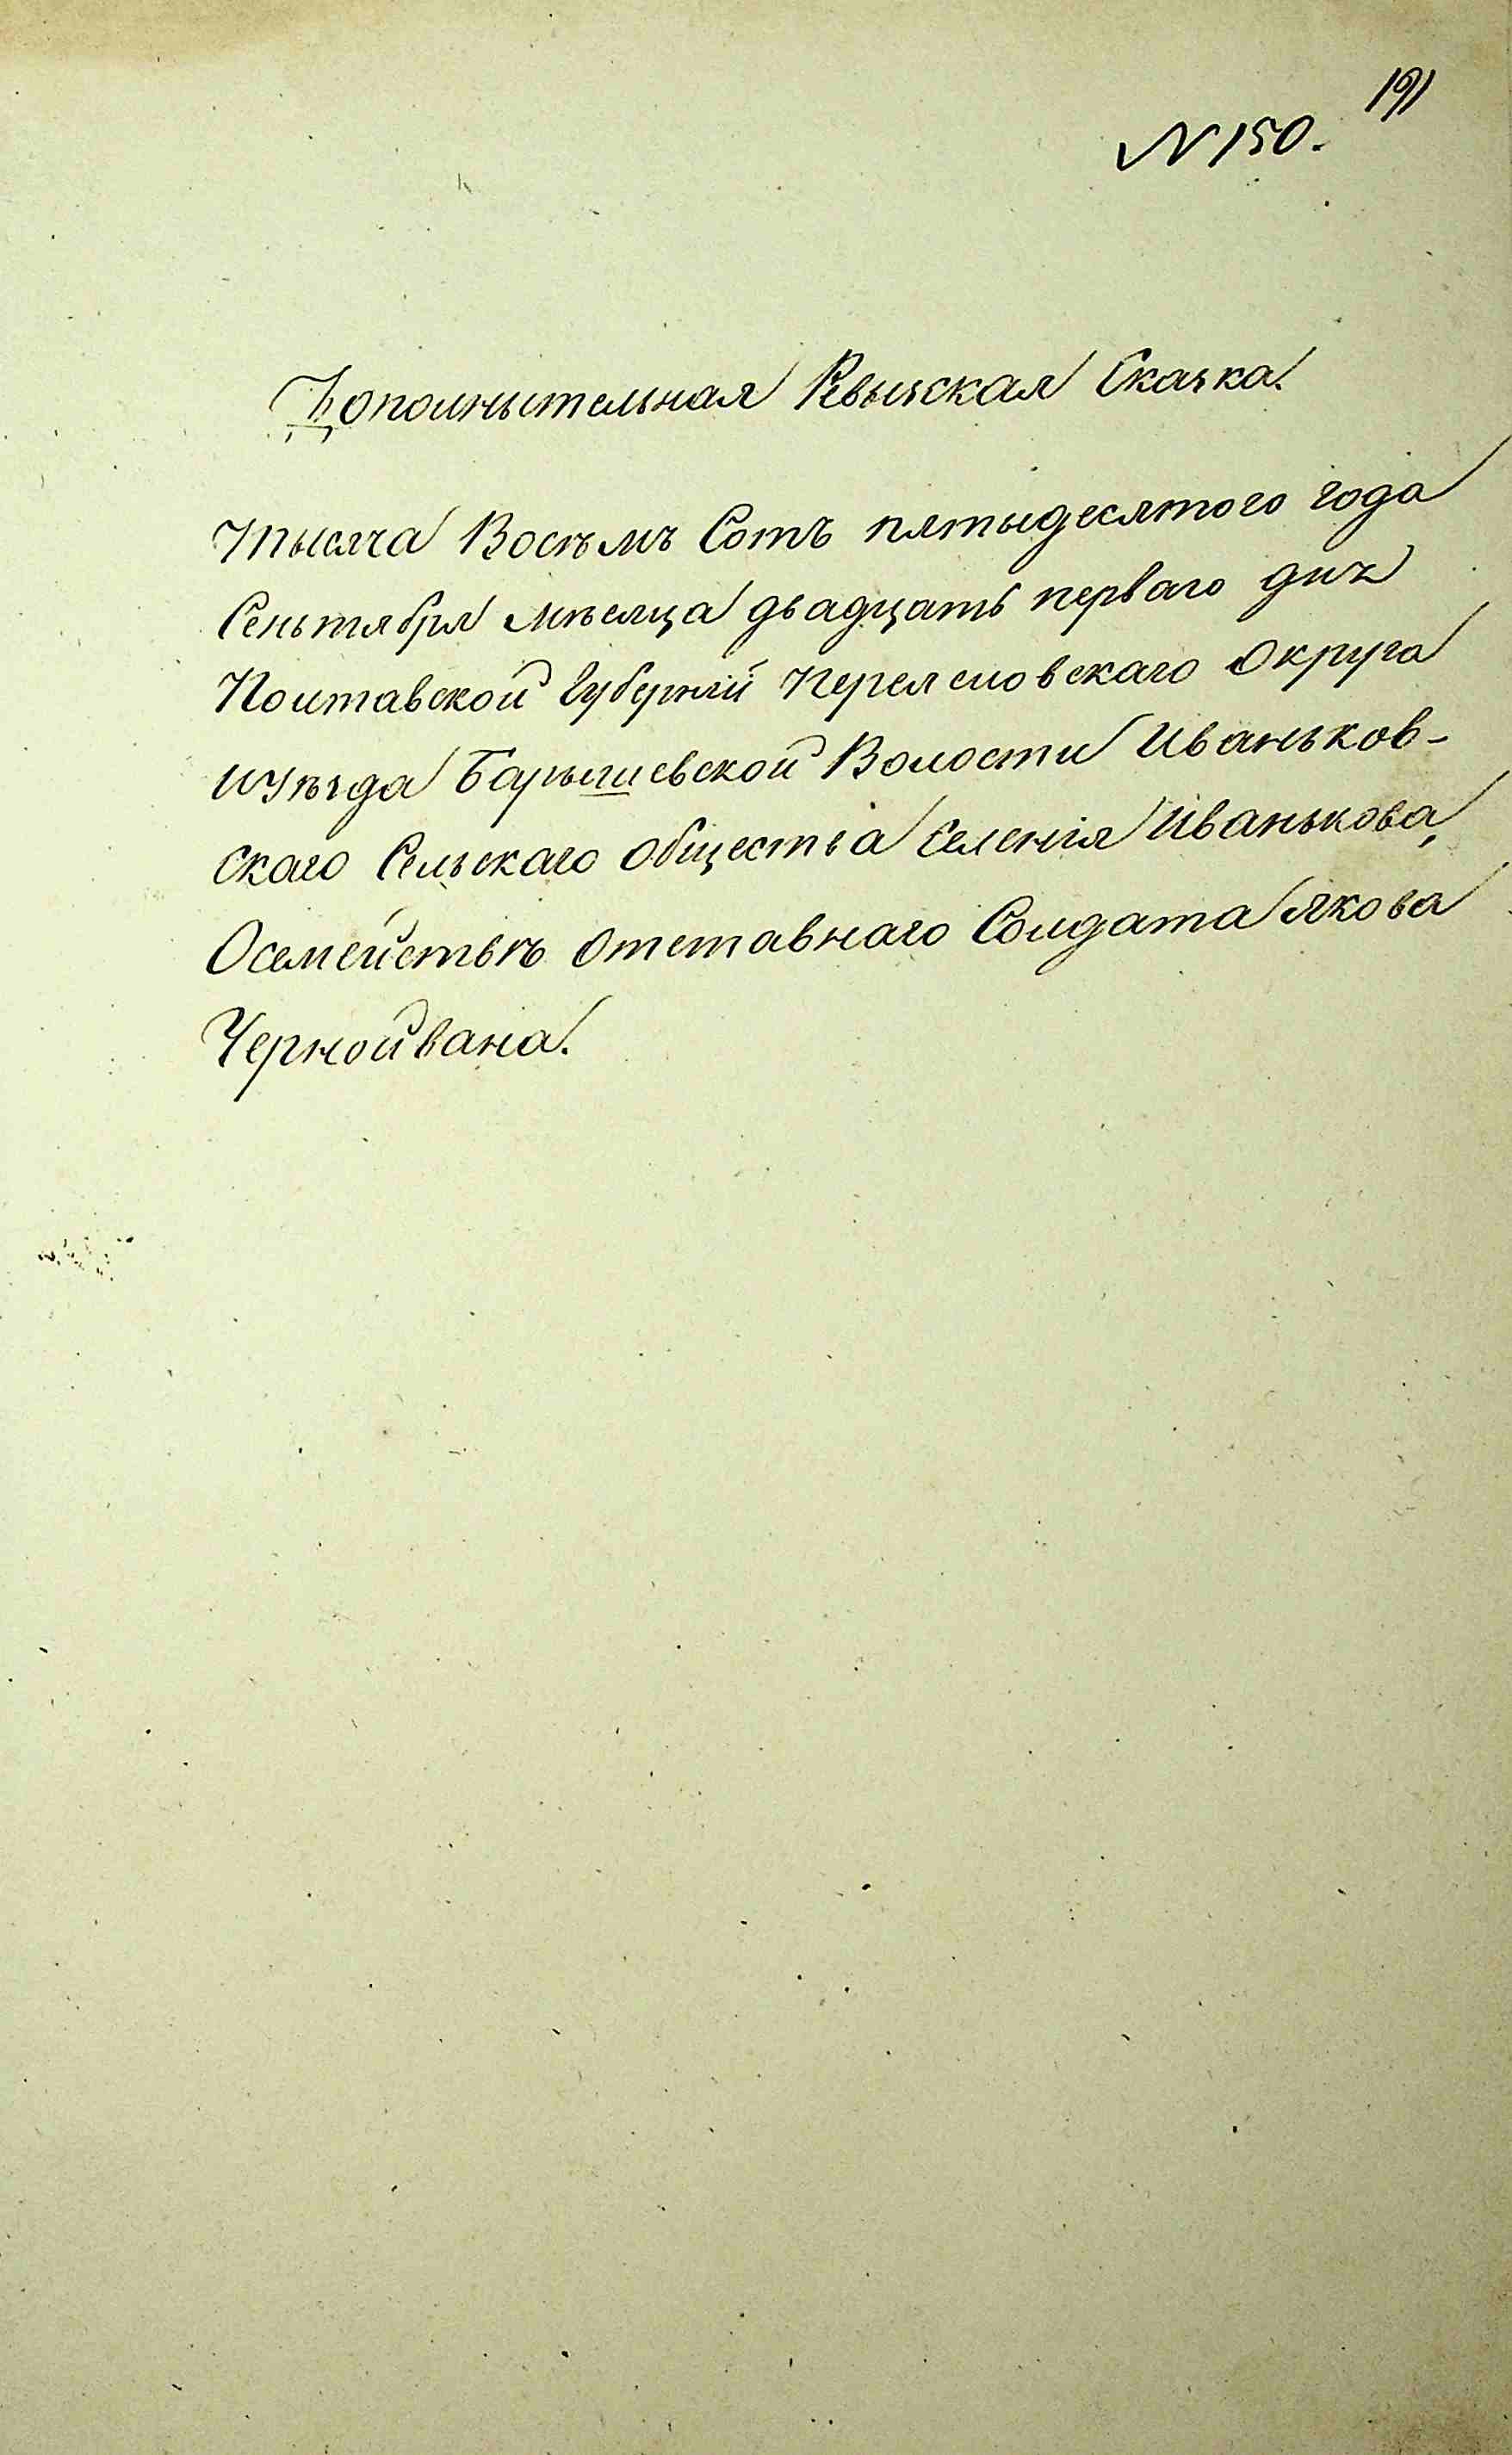 191
N 150.
Дополнытельная Ревызская Сказка.
Тысяча Восѣмъ Сотъ пятыдесятого года
Сеньтября мѣсяца двадцать перваго дня
Полтавской Губерніи Переясловскаго Округа
иУѣзда Барышевской Волости Иваньков-
скаго Сельскаго Общества Селенія Иванькова,
Осемействѣ Отставнаго Солдата Якова
Чернойвана.